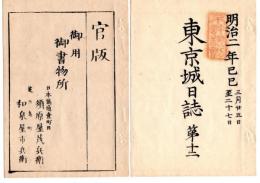 明治二年己巳
三月廿五日
至二十七日
東京城日誌 第十二
官版
御用
御書物所
日本橋通壹町目
須原屋茂兵衞
和泉屋市兵衞